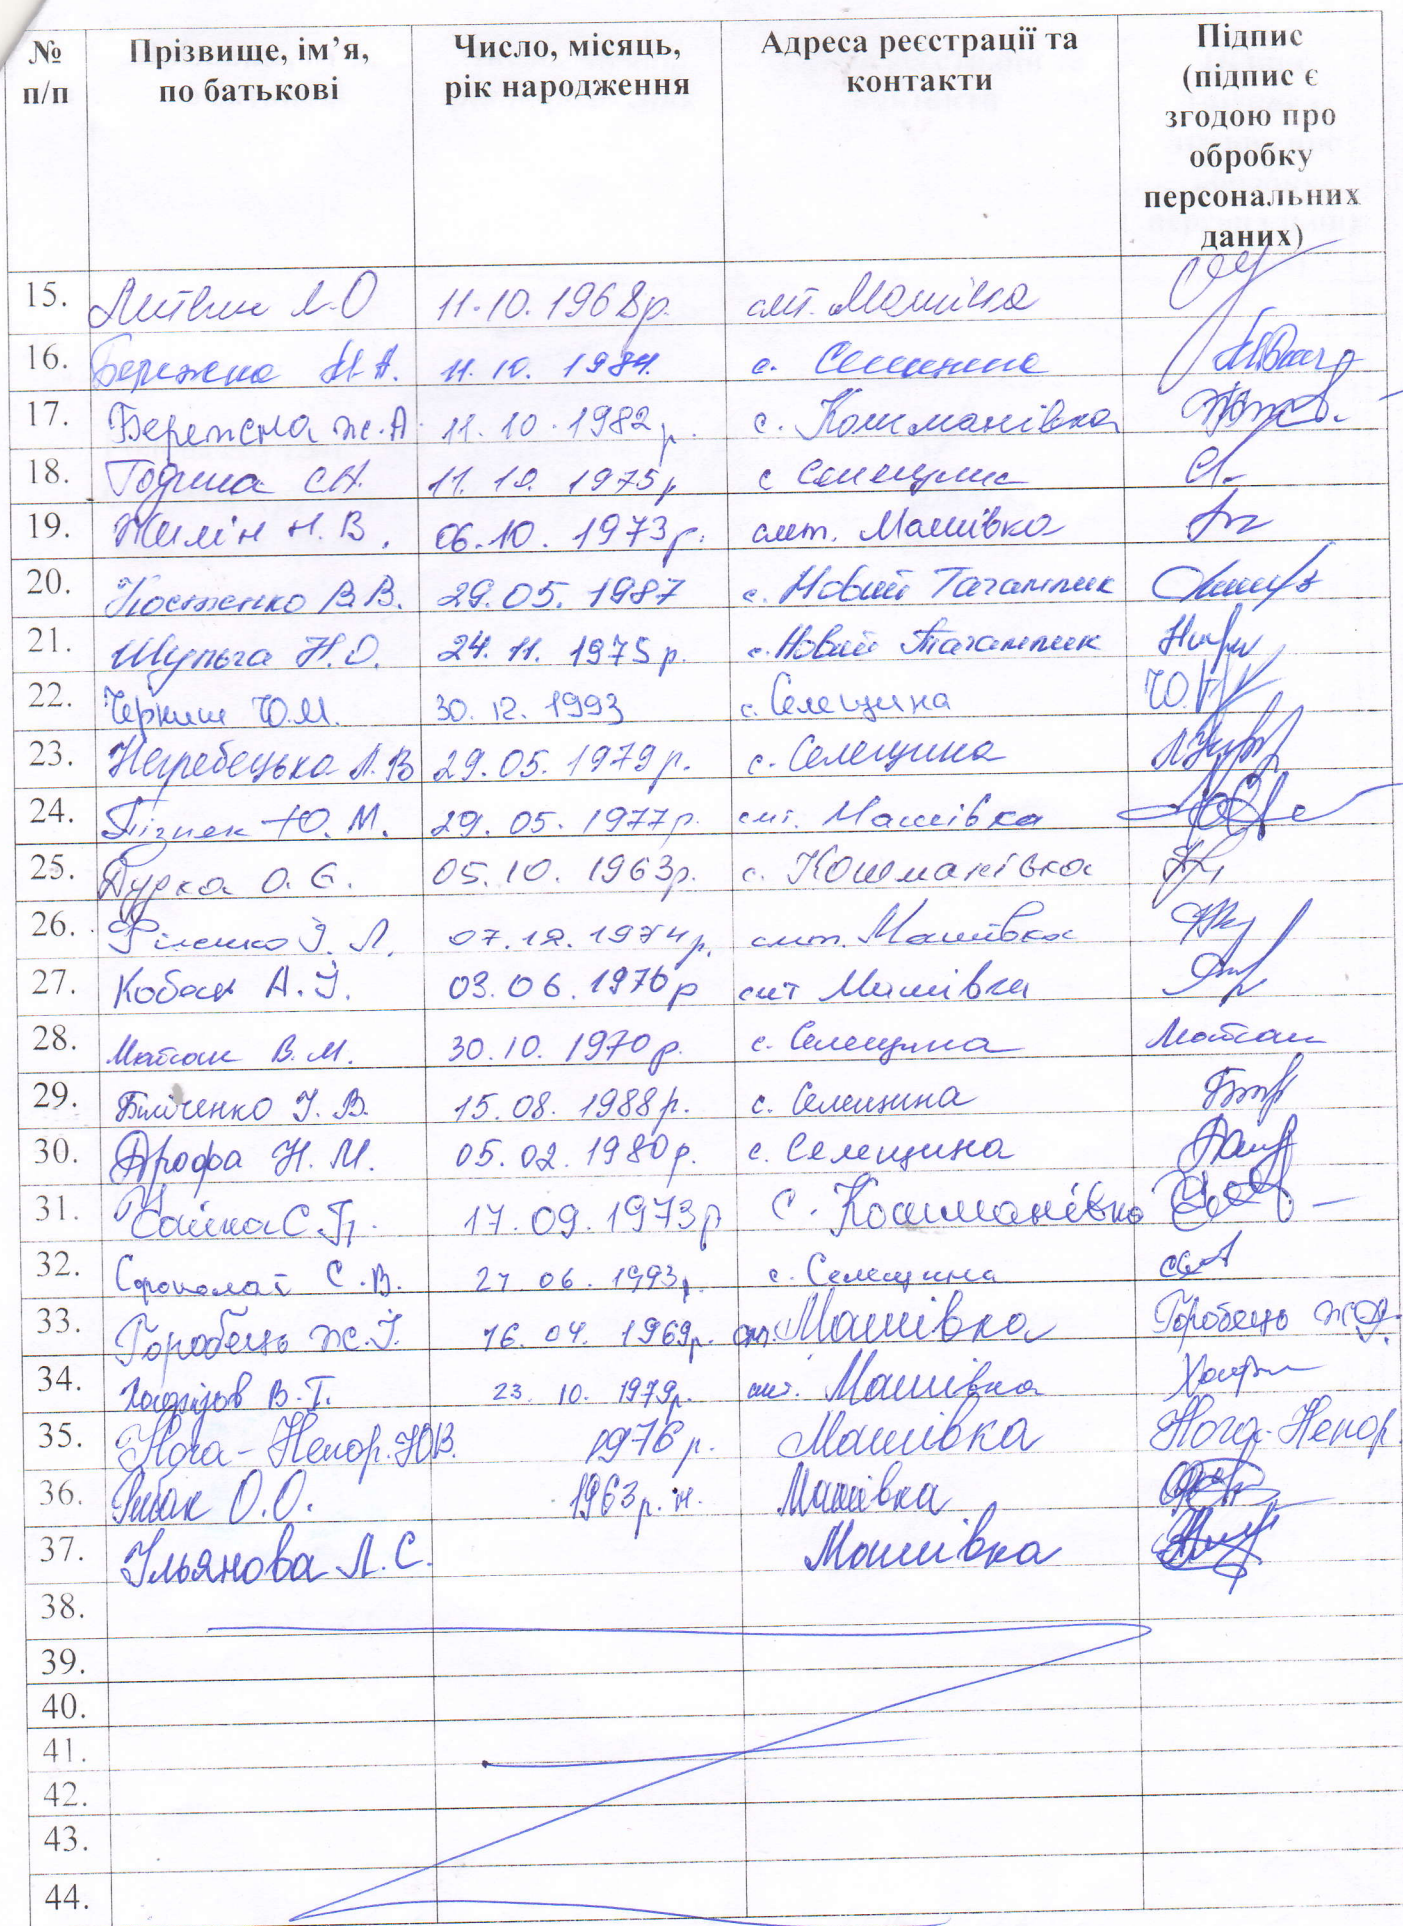 № п/п Прізвище, ім’я, по батькові Число, місяць, рік народження Адреса реєстрації та контакти Підпис (підпис є згодою про обробку персональних даних)
15. Литвин Л.О 11.10.1968р. смт. Машівка
16. Бережна М.А. 11.10.1984. с. Селещина
17. Бережна Ж.А. 11.10.1982р. с. Кошманівка
18. Година С.А. 11.10.1975р с Селещина
19. Жилін Н.В. 06.10.1973р. смт. Машівка
20. Костенко В.В. 29.05.1987 с. Новий Тагамлик
21. Шульга Н.О. 24.11.1975р. с. Новий Тагамлик
22. Черкиш Ю.М. 30.12.1993 с. Селещина
23. Негребецька Л.В 29.05.1979р. с. Селещина
24. Ю.М. 29.05.1977р. смт. Машівка
25. Дурка О.Є. 05.10.1963р. с. Кошманівка
26. І.Л. 07.12.1974р. смт. Машівка
27. Кобак А.І. 03.06.1976р смт Машівка
28. В.М. 30.10.1970р. с. Селещина
29. Біліченко І.В. 15.08.1988р. с. Селещина
30. Дрофа Н.М. 05.02.1980р. с. Селещина
31. С.П. 17.09.1973р С. Кошманівка
32. С.В. 27.06.1993р. с. Селещина
33. Горобець Ж.І. 16.04.1969р. смт. Машівка Горобець Ж
34. В.Г. 23.10.1979р. смт. Машівка
35. Нога-Непор. Ю.В. 1976р. Машівка Нога-Непор.
36. Рибак О.О. 1963р.н. Машівка
37. Ульянова Л.С. Машівка
38.
39.
40.
41.
42.
43.
44.